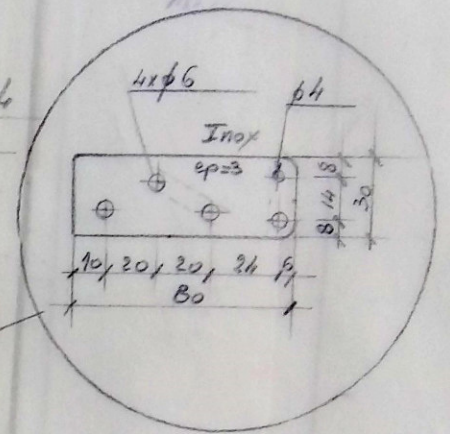 4xϕ6
ϕ4
Inox
ep=3
8
14
30
8
10 20 20 24 6
80